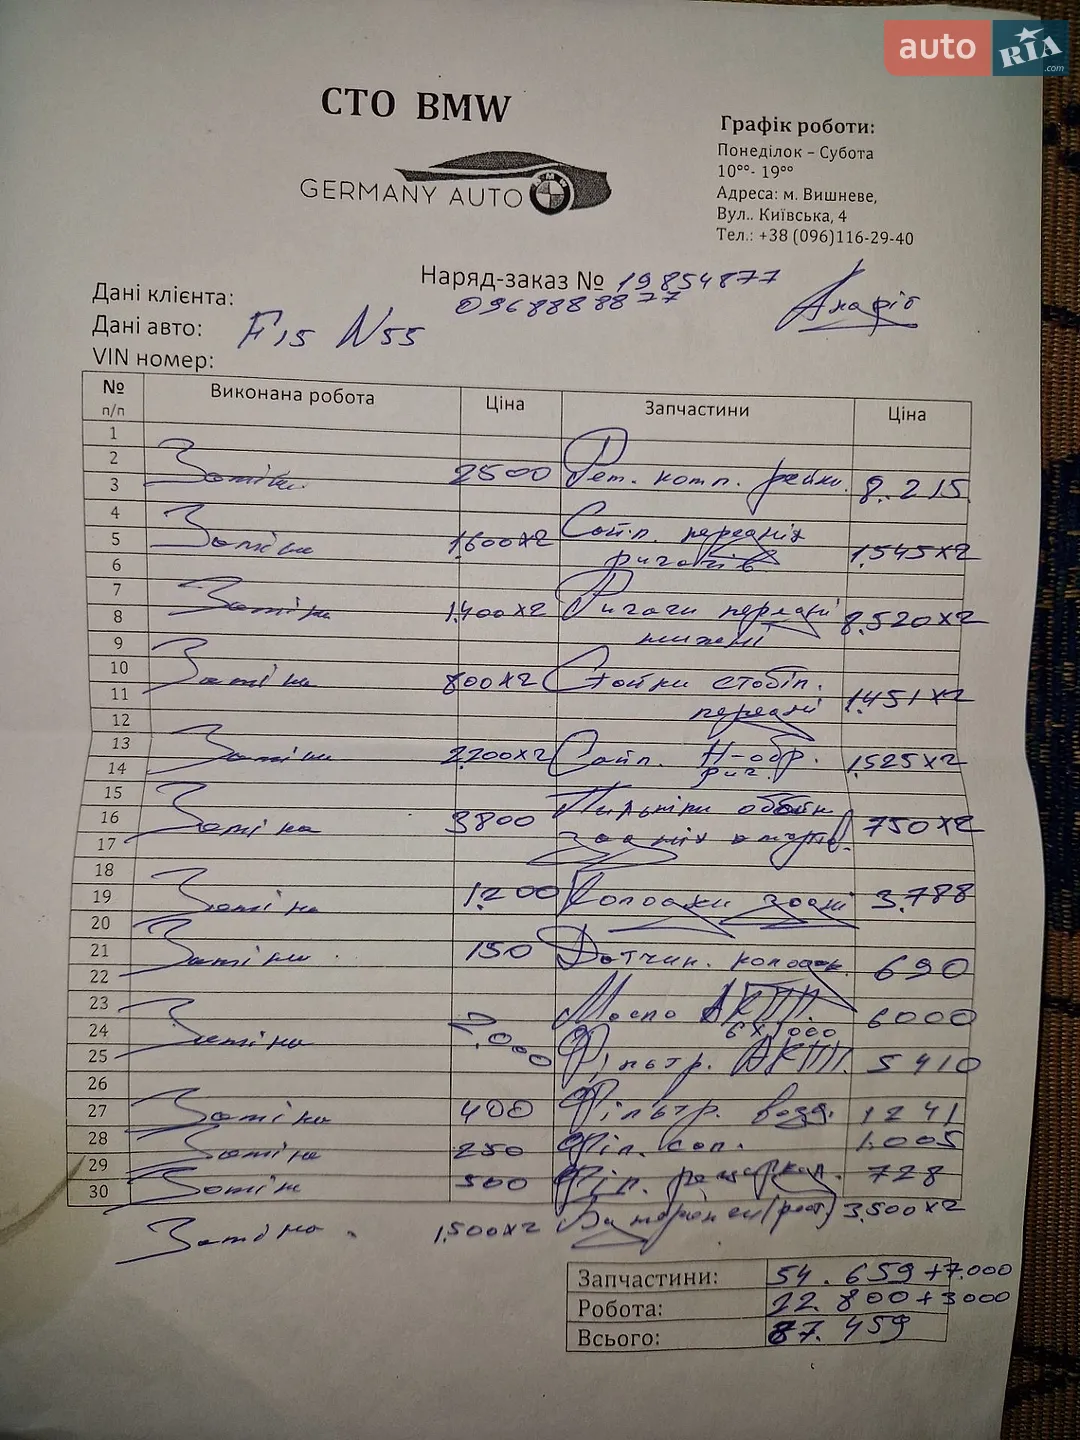 auto RIA.com
СТО BMW
GERMANY AUTO
BMW
Графік роботи:
Понеділок – Субота
10⁰⁰- 19⁰⁰
Адреса: м. Вишневе,
Вул.. Київська, 4
Тел.: +38 (096)116-29-40
Наряд-заказ № 19854877
0968888877
Дані клієнта:
Дані авто: F15 N55
VIN номер:
№ п/п Виконана робота Ціна Запчастини Ціна
1
2
3 Заміна 2500 Рем. комп. рейки. 8.215
4
5 Заміна 1.600х2 Сайл. передніх 1.545х2
6 ричагів
7
8 Заміна 1.400х2 Ричаги передні 8.520х2
9 нижні
10
11 Заміна 800х2 Стойки стабіл. 1.451х2
12 передні
13
14 Заміна 2.200х2 Сайл. Н-обр. 1.525х2
15 рич.
16 Заміна 3800 750х2
17 задніх
18
19 Заміна 1.200 Колодки задні 3.788
20
21 Заміна. 150 Датчик. колодок. 690
22
23 Масло АКПП. 6000
24 Заміна 2.000 6х1000
25 Фільтр. АКПП. 5410
26
27 Заміна 400 Фільтр. возд. 1241
28 Заміна 250 Філ. сал. 1.005
29
30 Заміна 500 Філ. 728
Заміна. 1.500х2 (рест) 3.500х2
Запчастини: 54.659+7.000
Робота: 22.800+3000
Всього: 87.459